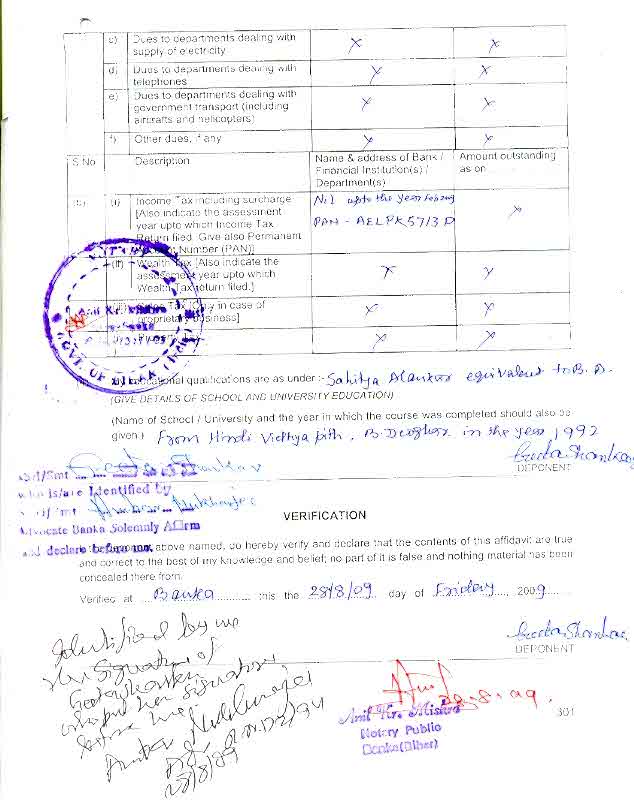 c) Dues to departments dealing with X X
supply of electricity
d) Dues to departments dealing with X X
telephones
e) Dues to departments dealing with X X
government transport (including
aircrafts and helicopters)
f) Other dues, if any X X
S.No Description Name & address of Bank / Amount outstanding
Financial Institution(s) / as on
Department(s)
(b) (i) Income Tax including surcharge Nil upto the year X
[Also indicate the assessment PAN - AELPK5713D
year upto which Income Tax
Return filed. Give also Permanent
Number (PAN)]
(ii) Wealth Tax [Also indicate the X X
assessment year upto which
Wealth Tax return filed.]
Sales Tax [Only in case of X X
proprietary business]
X X
educational qualifications are as under :- Sahitya Alankar equivalent to B.A.
(GIVE DETAILS OF SCHOOL AND UNIVERSITY EDUCATION)
(Name of School / University and the year in which the course was completed should also be
given.) From Hindi Vidhya pith, B. Deoghar in the year 1992
Geeta Shankar
DEPONENT
who is/are Identified by
Advocate Banka Solemnly
and declare before me
VERIFICATION
above named, do hereby verify and declare that the contents of this affidavit are true
and correct to the best of my knowledge and belief; no part of it is false and nothing material has been
concealed there from.
Verified at Banka this the 28/8/09 day of Friday 2009
Geeta Shankar
DEPONENT
Identified by me
her signature of
who put her signature
before me
28/8/09
28.8.09.
Anil Kr. Mishra
Notary Public
Banka (Bihar)
301